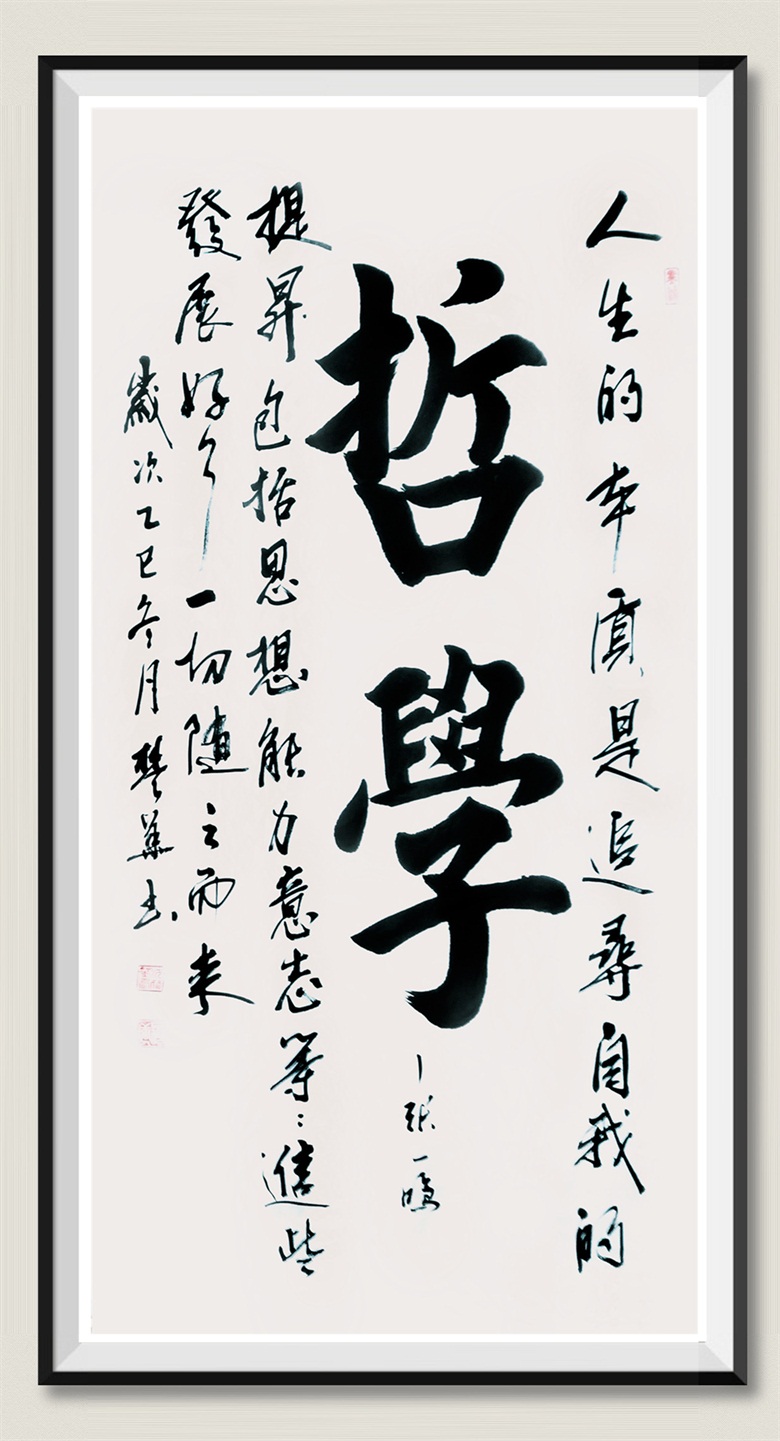 人生的本質是追尋自我的
哲學
—張一鳴
提昇包括思想能力意志等:這些
發展好了一切随之而来
歲次乙巳冬月书